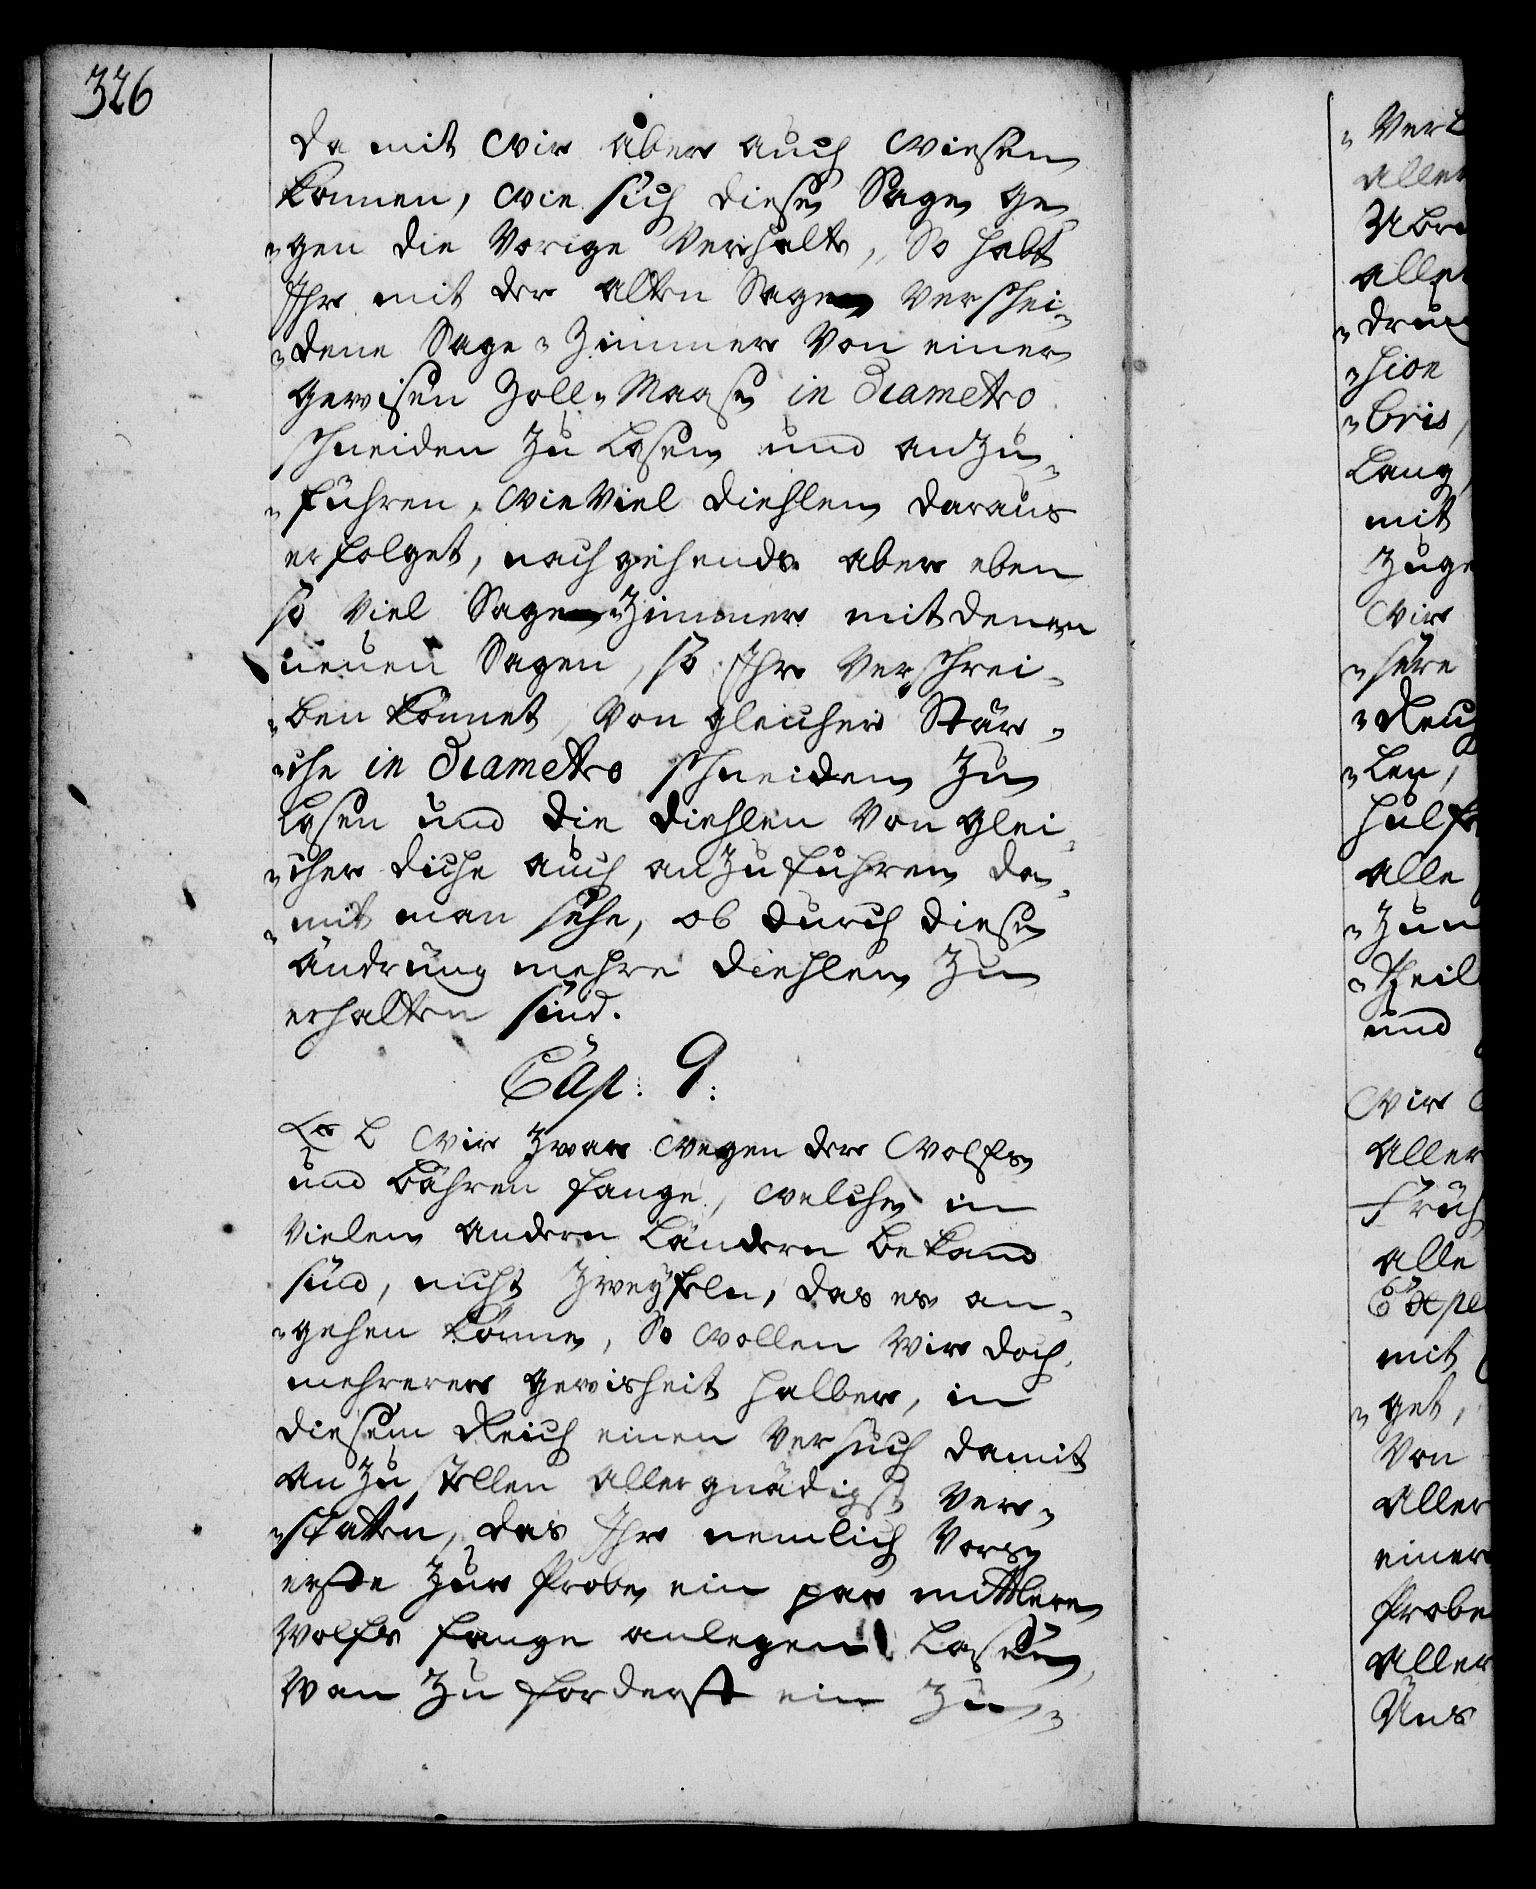 326
Da mit wir aber auch wiesen
können, wie sich diese Sage ge-
-gen die Vorige Verhalte, So habt
Ihr mit der alten Sage verschei-
-dene Sage-Zimmer Von einer
gewisen Zoll-Maase in Diametro
schneiden zu lasen und anzu-
-führen, wie Viel diehlen daraus
erfolget, nachgehends aber eben
so Viel Sage Zimmer mit denen
neuen Sagen, so Ihr Verschrei-
-ben könnet, Von gleicher Stär-
-che in Diametro schneiden zu
lasen und die diehlen Von glei-
-cher diche auch anzuführen da-
-mit man sehe, ob durch diese
Ändrung mehre diehlen zu
erhalten sind.
Cap: 9:
Ob wir zwar wegen der Wolfs-
und Bähren fange, welche in
Vielen andern Ländern bekand
sind, nicht zweyfeln, das es an-
-gehen könne, So wollen wir doch
mehrerer gewisheit halber, in
diesem Reich einen Versuch damit
anzustellen allergnädigst Ver-
-statten, das Ihr nemlich Vors
erste zur Probe ein par mittlere
Wolfs fange anlegen lasen,
wan zu forderst ein zu-
- Verb
aller
Ubre
aller
-drung
-hion
-bris,
Lang,
mit
zuge
wir
-sere
-Reich
-len,
hülfe
alle
-zum
-theil
und
wir
aller
Früh
alle
Expe
mit
-get,
Von
aller
einer
Probe
aller
Uns